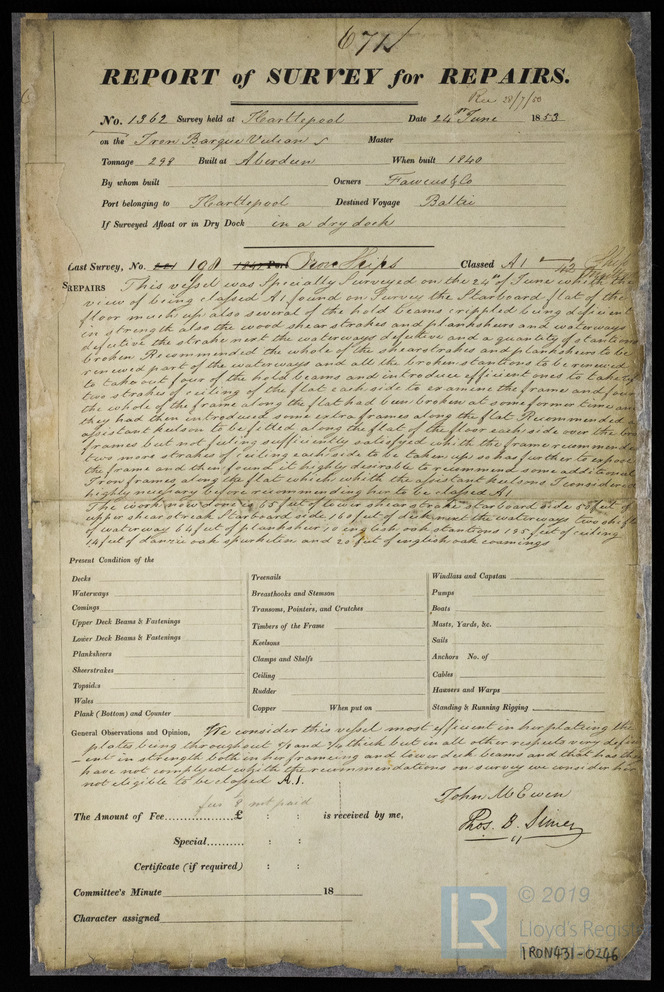 671
REPORT of SURVEY for REPAIRS.
No. 1362 Survey held at Hartlepool Date 24th June 1853
on the Iron Barque Vulcan Master
Tonnage 298 Built at Aberdeen When built 1840
By whom built Owners Fawcus & Co
Port belonging to Hartlepool Destined Voyage Baltic
If Surveyed Afloat or in Dry Dock in a dry dock
Last Survey, No. 198 Iron Ships Classed A1
REPAIRS This vessel was Specially Surveyed on the 24th of June whith the
view of being classed A1, found on Survey the Starboard flat of the
floor much up also several of the hold beams crippled being deficient
in strength also the wood shearstrakes and planksheers and waterways
defective the strake next the waterways defective and a quantity of stantions
broken. Recommended the whole of the shearstrakes and planksheers to be
renewed part of the waterways and all the broken stantions to be renewed
to take out four of the hold beams and introduce efficient ones to take up
two strakes of ceiling of the flat each side to examine the frame and found
the whole of the frame along the flat had been broken at some former time and
they had then introduced some extra frames along the flat Recommended
assistant keelson to be fitted along the flat of the floor each side over the
frames but not feeling sufficiently satisfied whith the frame recommended
two more strakes of ceiling each side to be taken up so has further to expose
the frame and then found it highly desirable to recommend some additional
Iron frames along the flat which whith the assistant keelsons I considered
highly necessary before recommending her to be classed A1
The work now done is 65 feet of lower shear strake starboard side 50 feet of
upper shearstreak Starboard side 160 feet of deck next the waterways two shifts
of waterway 64 feet of planksheer 10 english oak stantions 185 feet of ceiling
14 feet of danzic oak spurketten and 20 feet of english oak coamings
Present Condition of the
Decks
Waterways
Comings
Upper Deck Beams & Fastenings
Lower Deck Beams & Fastenings
Planksheers
Sheerstrakes
Topsides
Wales
Plank (Bottom) and Counter
Treenails
Breasthooks and Stemson
Transoms, Pointers, and Crutches
Timbers of the Frame
Keelsons
Clamps and Shelfs
Ceiling
Rudder
Copper When put on
Windlass and Capstan
Pumps
Boats
Masts, Yards, &c.
Sails
Anchors No. of
Cables
Hawsers and Warps
Standing & Running Rigging
General Observations and Opinion, We consider this vessel most efficient in her plateing the
plates being throughout and thick but in all other respects very defici
-ent in strength both in her frameing and lower deck beams and that has they
have not complyed whith the recommendations on survey we consider her
not eligible to be classed A.1.
fees not paid
The Amount of Fee £ : : is received by me,
John McEwen
Thos. B. Simey
Special : :
Certificate (if required) : :
Committee's Minute 18
Character assigned
LR © 2019
Lloyd's Register
IRON431-0246